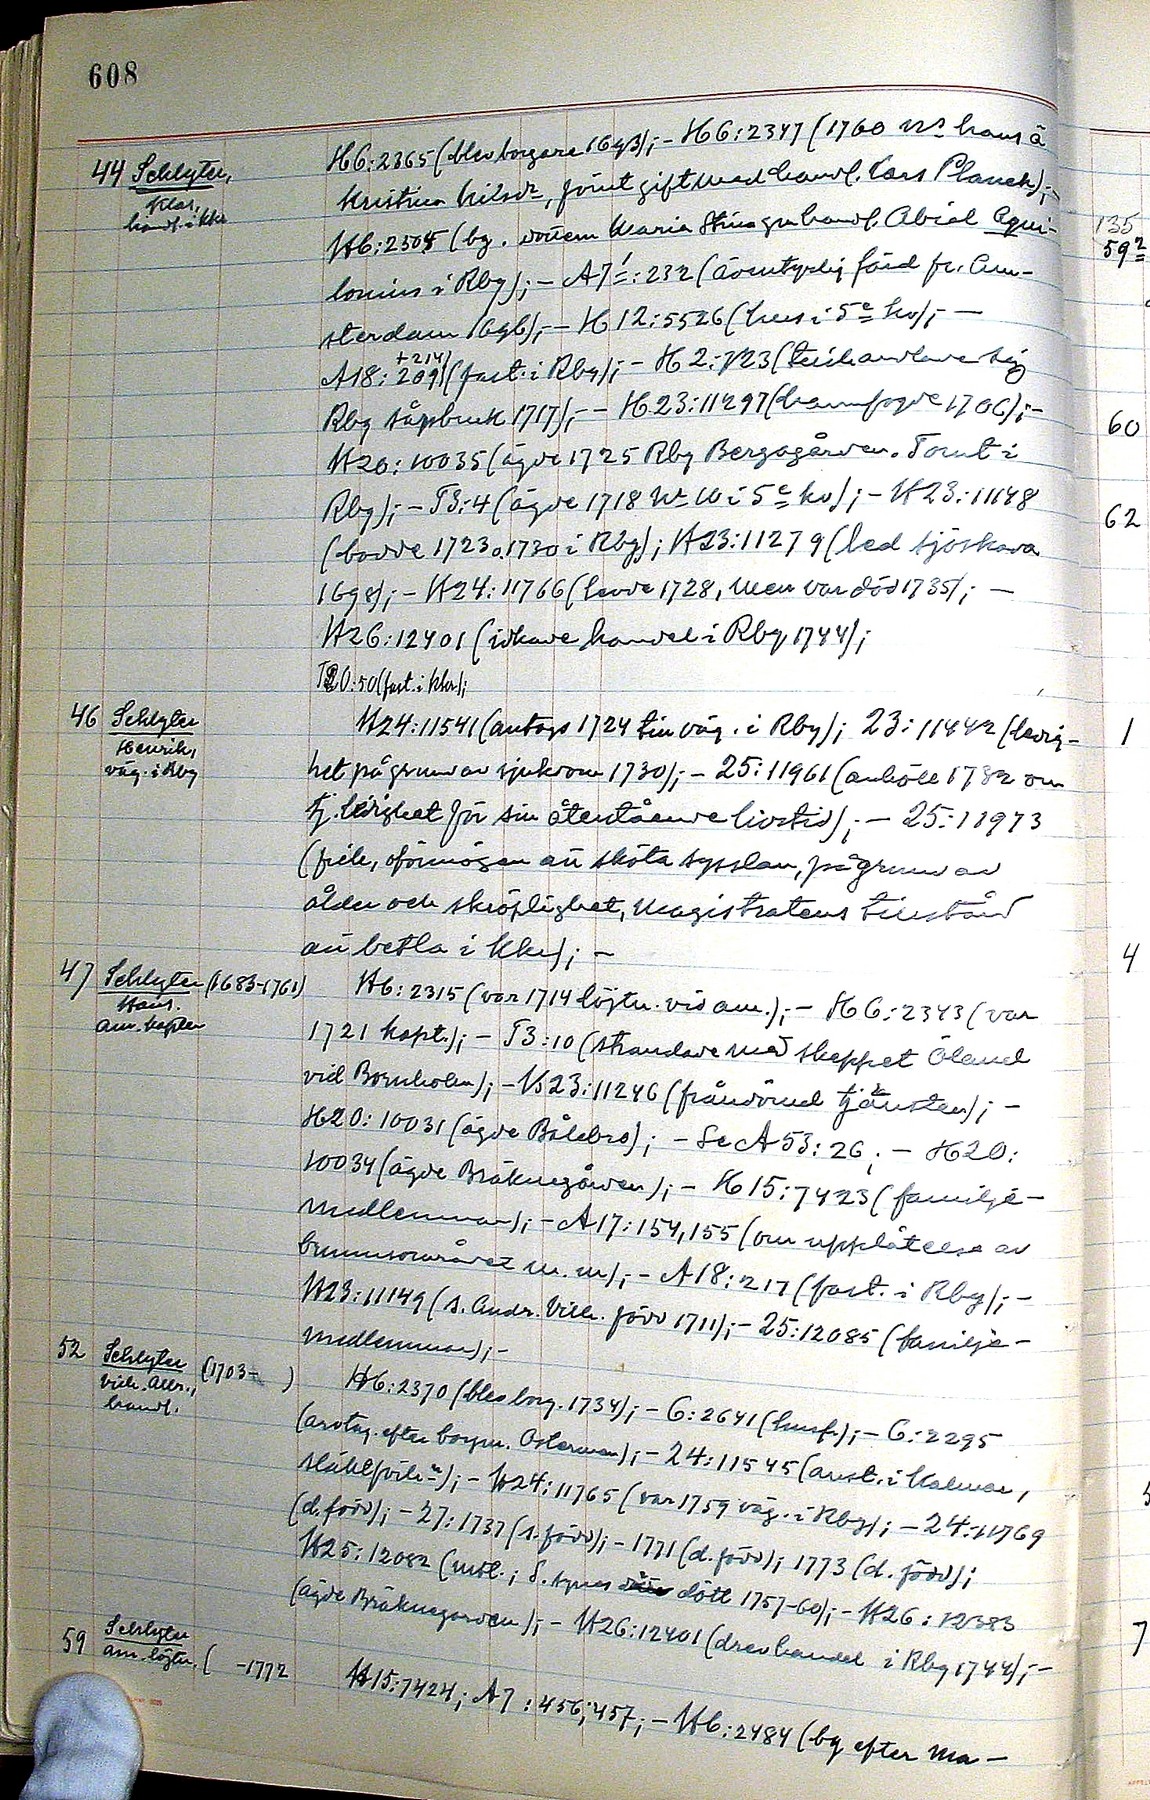 608
44 Schlyter,
Klas,
handl. i Kkr
H6:2365 (blev borgare 1693); – H6:2347 (1760
Kristina Nilsdr, förut gift med handl. Lars Planck); –
H6:2505 (by. Maria Stina handl. Abiel Aqui-
lonius i Rby); – A7:232 (äventyrlig färd fr. Am-
sterdam 1696); – H12:5526 (hus i 5e kv); –
+214
A18:209 (fast. i Rby); – H2:
Rby såpbruk 1717); – H23:11297 (hamnfogde 1706); –
H20:10035 (ägde 1725 Rby Bergsgården. Tomt i
Rby); – T3:4 (ägde 1718 Nr 10 i 5e kv); – H23:11148
(bodde 1723 o. 1730 i Rby); H23:11279 (led sjöskada
1698); – H24:11766 (levde 1728, men var död 1735); –
H26:12401 (idkade handel i Rby 1744);
T20:50 (fast. i Kkr);
46 Schlyter
Henrik,
våg. i Rby
H24:11541 (antogs 1724 till våg. i Rby); 23:11442 (ledig-
het på grund av sjukdom 1730); – 25:11961 (anhöll 1782 om
tj.ledighet för sin återstående livstid); – 25:11973
(fick, oförmögen att sköta sysslan, på grund av
ålder och skröplighet, magistratens tillstånd
att betla i Kkr); –
47 Schlyter (1683-1761)
Hans.
am. kapten
H6:2315 (var 1714 löjtn. vid am.); – H6:2343 (var
1721 kapt.); – T3:10 (strandade med skeppet Öland
vid Bornholm); – H23:11246 (frändömd tjänsten); –
H20:10031 (ägde Bålebro); – Se A53:26; – H20:
10034 (ägde Bräknegården); – H15:7423 (familje-
medlemmar); – A17:154,155 (om upplåtelse av
brunnsområdet m.m); – A18:217 (fast. i Rby); –
H23:11149 (s. Andr. Vilh. född 1711); – 25:12085 (familje-
medlemmar); –
52 Schlyter (1703- )
Vilh. Albr.,
handl.
H6:2370 (blev borg. 1734); – 6:2641 (husf.); – 6:2295
(arvtag. efter borgm. Osterman); – 24:11545 (anst. i Kalmar,
– H24:11765 (var 1759 våg. i Rby); – 24:11769
(d. född); – 27:1737 (s. född); – 1771 (d. född); 1773 (d. född);
H25:12082 (möl.; S. dött 1757-60); – H26:12383
(ägde Bräknegården); – H26:12401 (drev handel i Rby 1744); –
59 Schlyter
am. löjtn. ( -1772
H15:7424; A7:456, 457; – H6:2484 (by efter Ma-
135
592
60
62
1
4
7